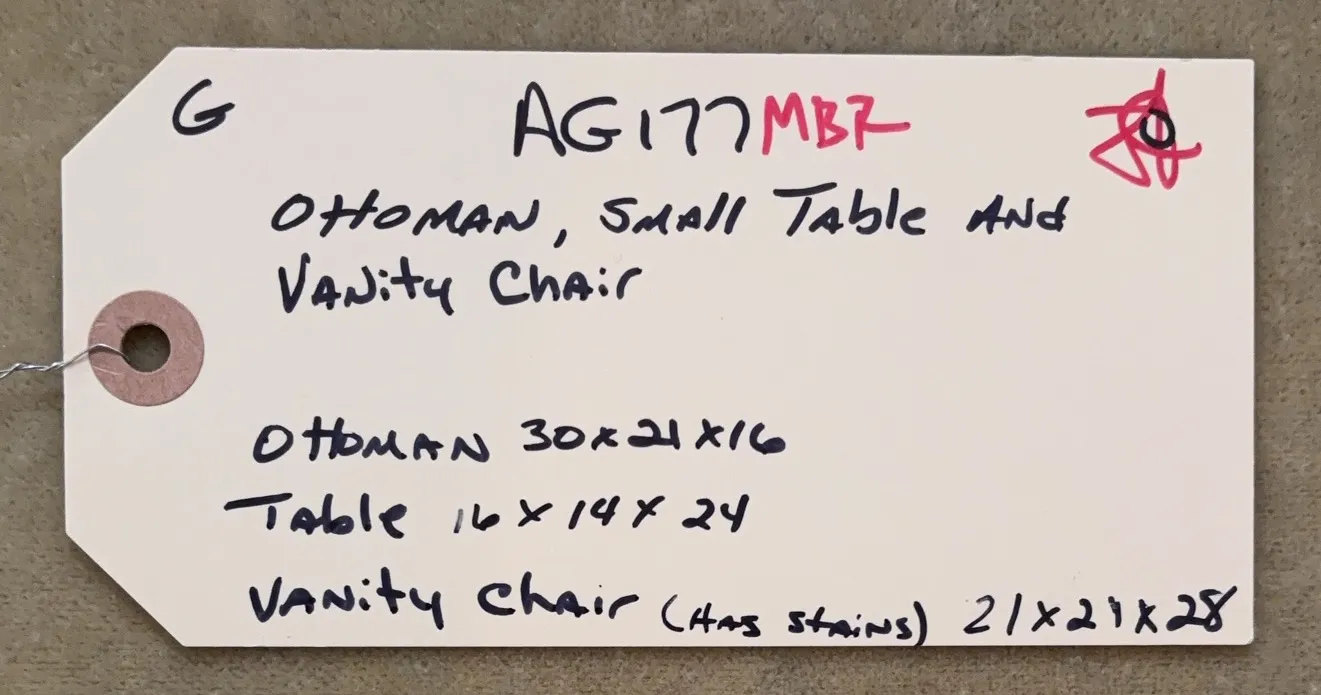 G AG177 MBR
OttOMAN, SMAll Table ANd
VANity ChAir
OttOMAN 30x21x16
Table 16 x 14 x 24
VANity ChAir (HAS StAiNS) 21x21x28